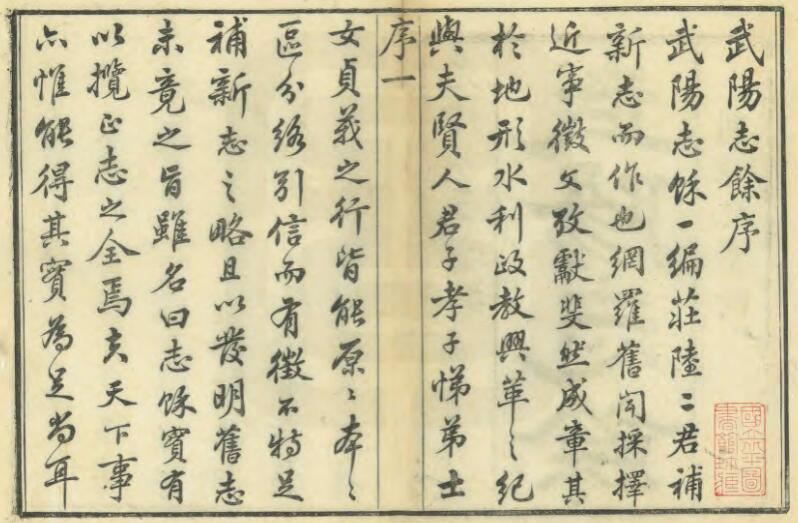 武陽志餘序
武陽志餘一編莊陸二君補
新志而作也網羅舊聞採擇
近事徵文攷獻斐然成章其
於地形水利政教興革之紀
與夫賢人君子孝子悌弟士
序一
女貞義之行皆能原〻本〻
區分緒引信而有徵不特足
補新志之略且以發明舊志
未竟之旨雖名曰志餘實有
以攬正志之全焉夫天下事
亦惟能得其實為足尚耳